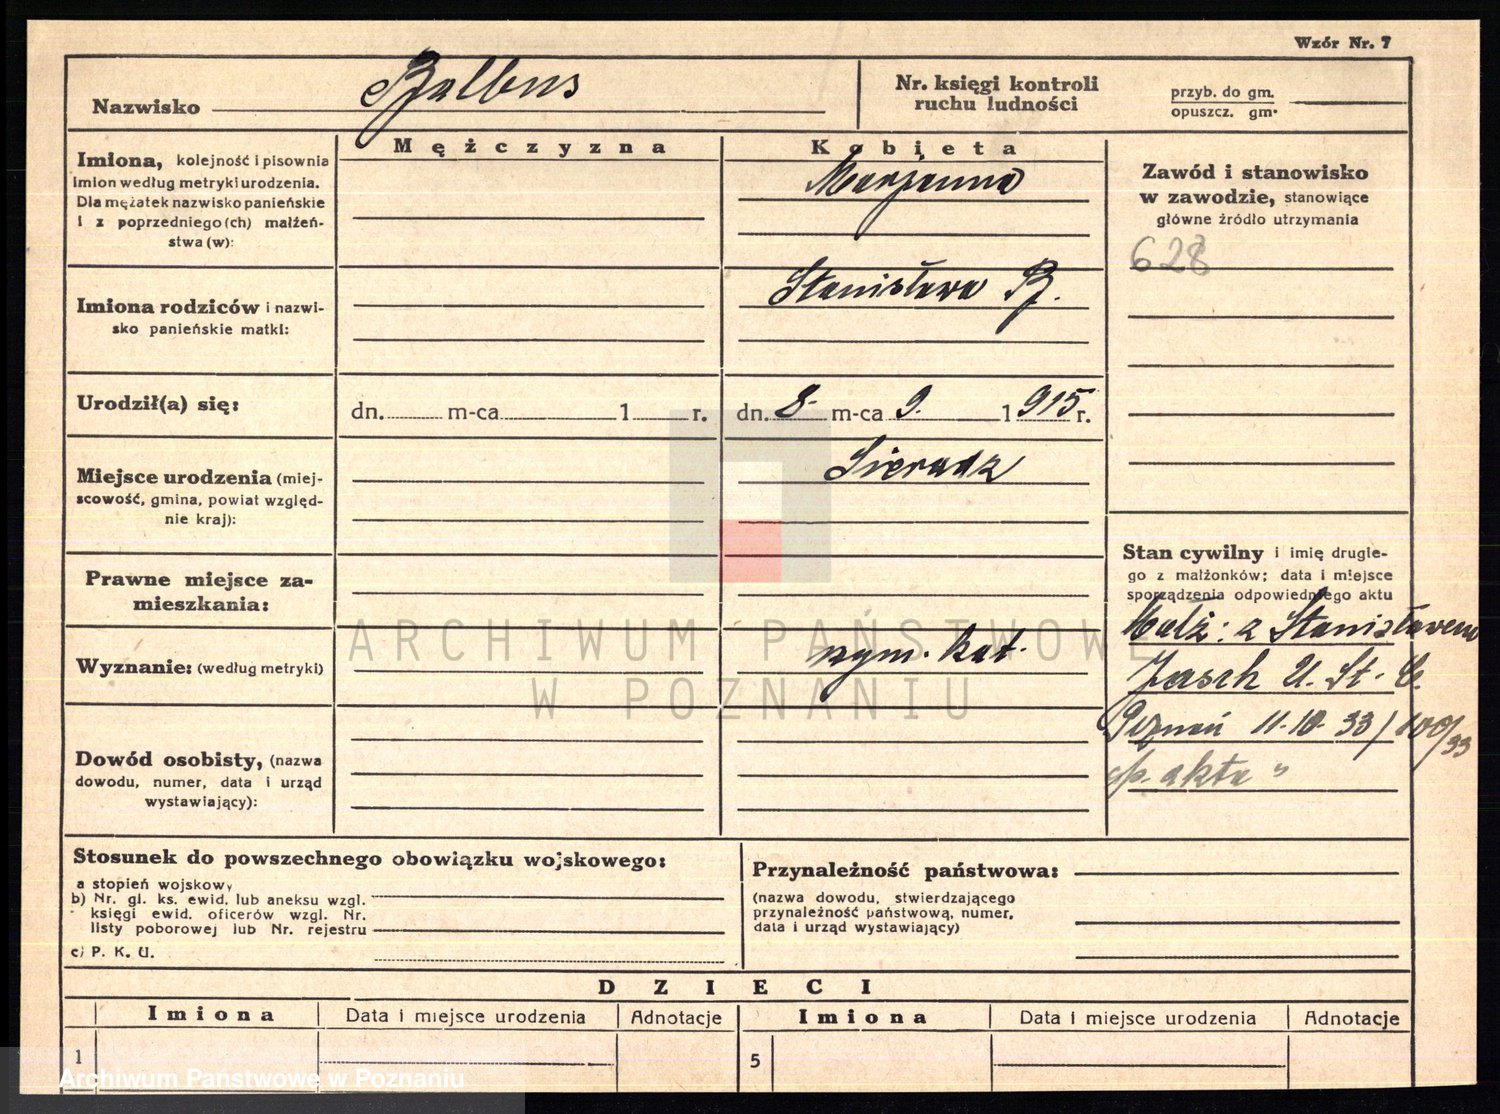 Wzór Nr. 7
Nazwisko Balbus
Nr. księgi kontroli
ruchu ludności
przyb. do gm.
opuszcz. gm.
Mężczyzna
Kobieta
Imiona, kolejność i pisownia
imion według metryki urodzenia.
Dla mężatek nazwisko panieńskie
i z poprzedniego (ch) małżeń-
stwa (w):
Marjanna
Zawód i stanowisko
w zawodzie, stanowiące
główne źródło utrzymania
628
Imiona rodziców i nazwi-
sko panieńskie matki:
Stanisława B.
Urodził(a) się:
dn. m-ca 1 r.
dn. 8. m-ca 9. 1 915 r.
Miejsce urodzenia (miej-
scowość, gmina, powiat względ-
nie kraj):
Sieradz
Prawne miejsce za-
mieszkania:
Stan cywilny i imię drugie-
go z małżonków; data i miejsce
sporządzenia odpowiedniego aktu
Małż: z Stanisławem
Jasch U. St. C.
Poznań 11.10.33/100/33
Wyznanie: (według metryki)
rzym. kat.
Dowód osobisty, (nazwa
dowodu, numer, data i urząd
wystawiający):
akta
Stosunek do powszechnego obowiązku wojskowego:
a stopień wojskowy
b) Nr. gł. ks. ewid. lub aneksu wzgl.
księgi ewid. oficerów wzgl. Nr.
listy poborowej lub Nr. rejestru
c) P. K. U.
Przynależność państwowa:
(nazwa dowodu, stwierdzającego
przynależność państwową, numer,
data i urząd wystawiający)
DZIECI
Imiona
Data i miejsce urodzenia
Adnotacje
Imiona
Data i miejsce urodzenia
Adnotacje
1
5
ARCHIWUM PAŃSTWOWE
W POZNANIU
Archiwum Państwowe w Poznaniu